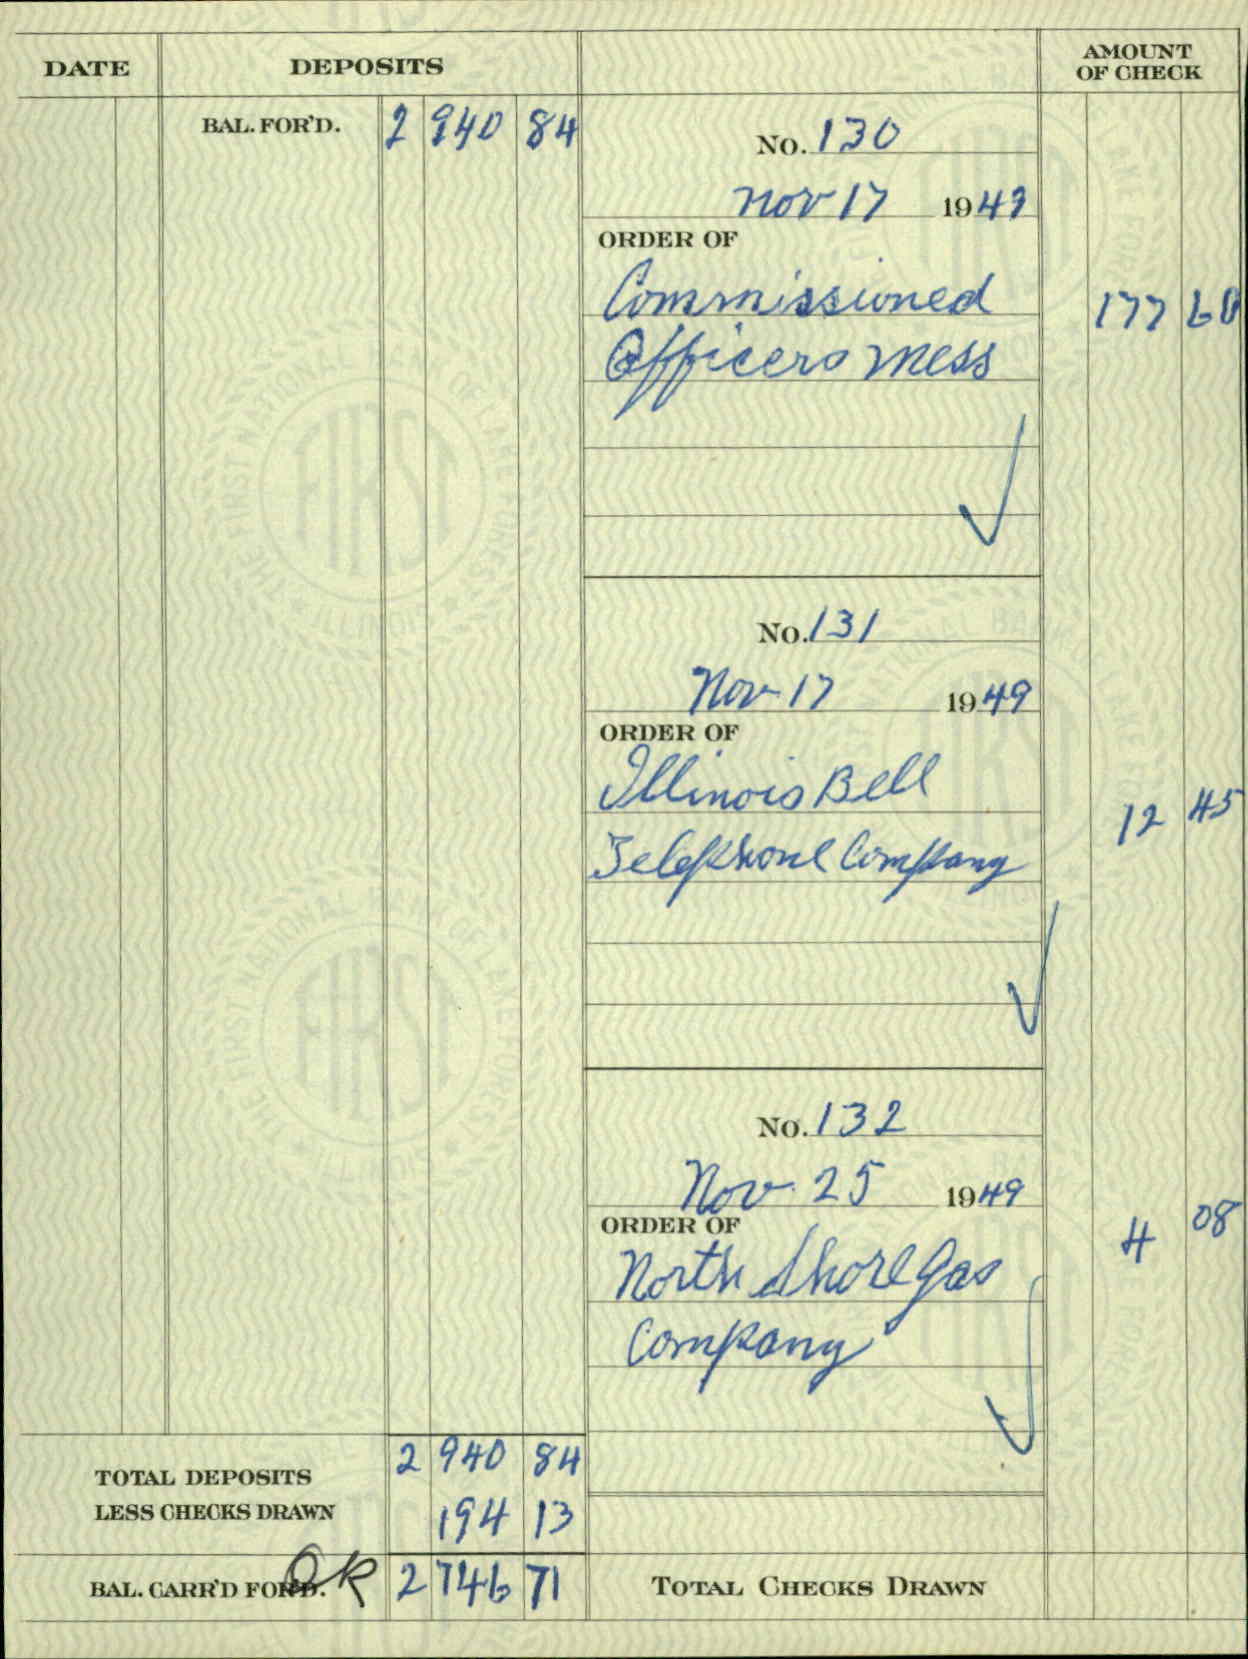 DATE DEPOSITS AMOUNT OF CHECK
BAL. FOR'D. 2 940 84
No. 130
Nov 17 1949
ORDER OF
Commissioned
Officers Mess
177 60
No. 131
Nov 17 1949
ORDER OF
Illinois Bell
Telephone Company
12 45
No. 132
Nov. 25 1949
ORDER OF
North Shore Gas
Company
4 08
TOTAL DEPOSITS 2 940 84
LESS CHECKS DRAWN 194 13
BAL. CARR'D FOR'D. OK 2 746 71
TOTAL CHECKS DRAWN